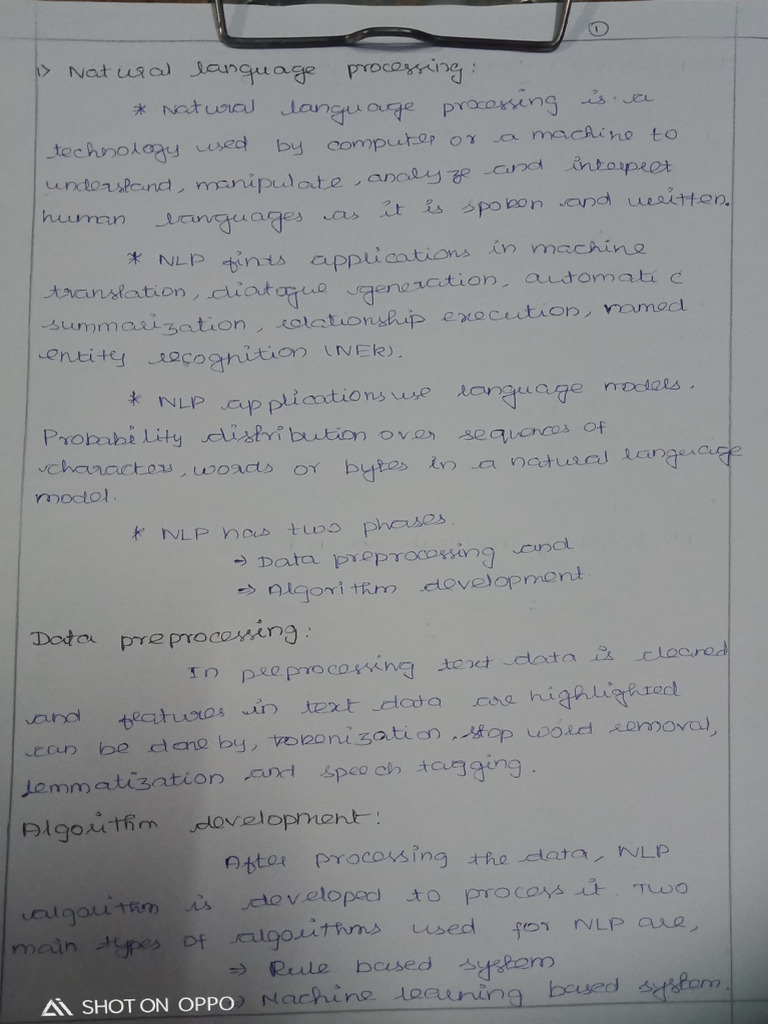 ①
1) Natural language processing:
* Natural language processing is a
technology used by computer or a machine to
understand, manipulate, analyze and interpret
human languages as it is spoken and written.
* NLP finds applications in machine
translation, dialogue generation, automatic
summarization, relationship execution, named
entity recognition (NER).
* NLP applications use language models.
Probability distribution over sequences of
characters, words or bytes in a natural language
model.
* NLP has two phases.
→ Data preprocessing and
→ Algorithm development
Data preprocessing:
In preprocessing text data is cleaned
and features in text data are highlighted
can be done by, tokenization, stop word removal,
lemmatization and speech tagging.
Algorithm development:
After processing the data, NLP
algorithm is developed to process it. Two
main types of algorithms used for NLP are,
⇒ Rule based system
⇒ Machine learning based system.
SHOT ON OPPO